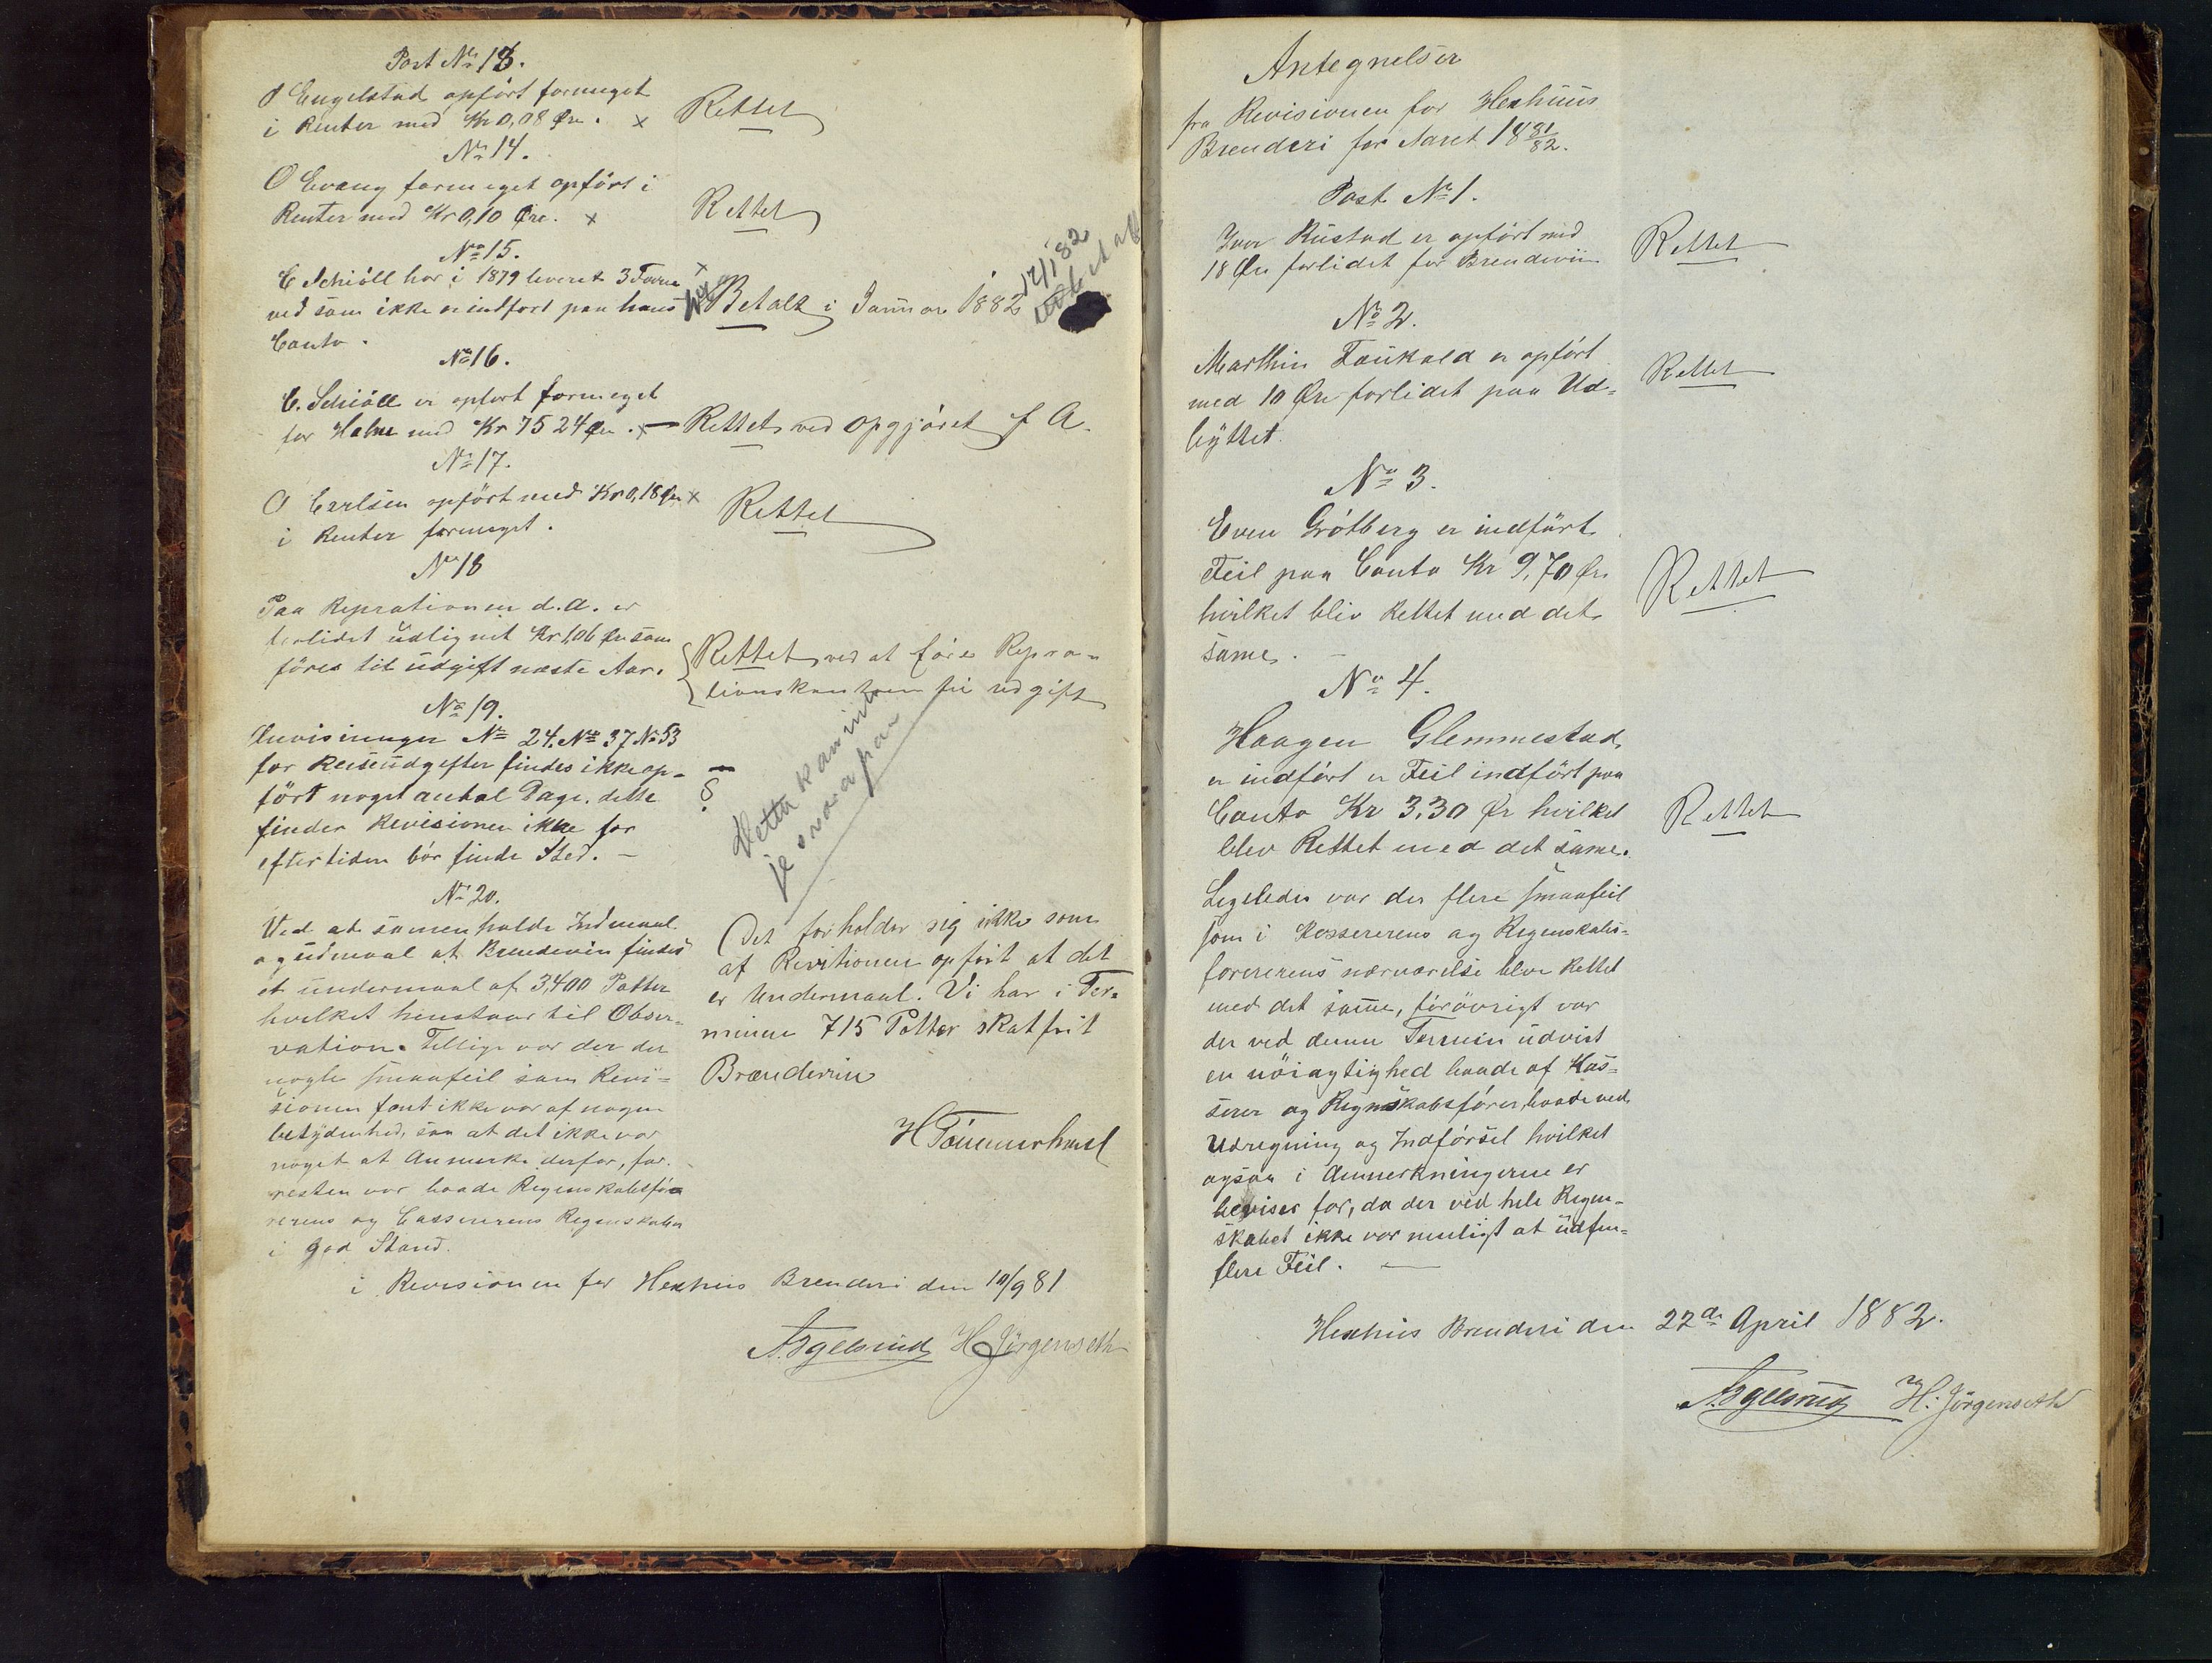 Post No 13.
O Engelstad opført formeget
i Renter med Kr 0,08 Øre. x Rettet
No 14.
O Evang formeget opført i
Renter med Kr 0,10 Øre. x Rettet
No 15.
C Schiöll har i 1879 leveret 3 Favne x
ved som ikke er indført paa hans Betalt i Januar 1882 12/1 82
Conto.
No 16.
C. Schiöll er opført formeget
for Halm med Kr 75 24 Øre. x — Rettet ved opgjøret f A.
No 17.
O Carlsen opført med Kr 0,18 Øre x
i Renter formeget. Rettet
No 18
Paa Reprationen d.a. er
forlidet udlignet Kr 1,06 Øre som
føres til udgift næste Aar.
Rettet ved at føre Repra-
tionskontoen til udgift
No 19.
Anvisninger No 24. No 37 No 53
for Reiseudgifter findes ikke op-
ført noget antal Dage. dette
finder Revisionen ikke for
eftertiden bør finde Sted. —
Dette kan inte
je svara paa
No 20.
Ved at samenholde Indmaal
og udmaal at Brendevin findes
et undermaal af 3,400 Potter
hvilket henstaar til Obser-
vation. Tillige var der der
nogle smaafeil som Revi-
sionen fant ikke var af nogen
betydenhed, saa at det ikke var
noget at Anmerke derfor, for
resten var baade Regenskabsfø-
rerens og Cassererens Regenskaber
i god Stand.
Det forholder sig ikke som
af Revitionen opført at det
er Undermaal. Vi har i Ter-
minen 715 Potter skatfrit
Brændeviin
H Tömmerhuul
i Revisionen for Hexhus Brenderi den 10/9 81
A. Sgelsrud H Jörgenseth
Antegnelser
fra Revisionen for Hexhuus
Brenderi for Aaret 18 81/82.
Post No 1.
Iver Rustad er opført med
18 Øre forlidet for Brendeviin Rettet
No 2.
Marthin Faukald er opført
med 10 Øre forlidet paa Ud-
byttet. Rettet
No 3.
Even Grøtberg er indført
Feil paa Conto Kr 9,70 Øre
hvilket blev Rettet med det
same. — Rettet
No 4.
Haagen Glemmestad
er indført er Feil indført paa
Conto Kr 3,30 Ør hvilket
blev Rettet med det same. Rettet
Ligeledes var der flere smaafeil
som i Kassererens og Regenskabs-
førererens nærværelse blev Rettet
med det same, forøvrigt var
der ved denne Termin udvist
en nöiagtighed baade af Kas-
serer og Regnskabsfører, baade ved
Udregning og Indførsel hvilket
ogsaa i Anmerkningerne er
beviser for, da der ved hele Regen-
skabet ikke var muligt at udfin-
flere Feil. —
Hexhus Brenderi den 22de April 1882.
A. Sgelsrud H. Jörgenseth